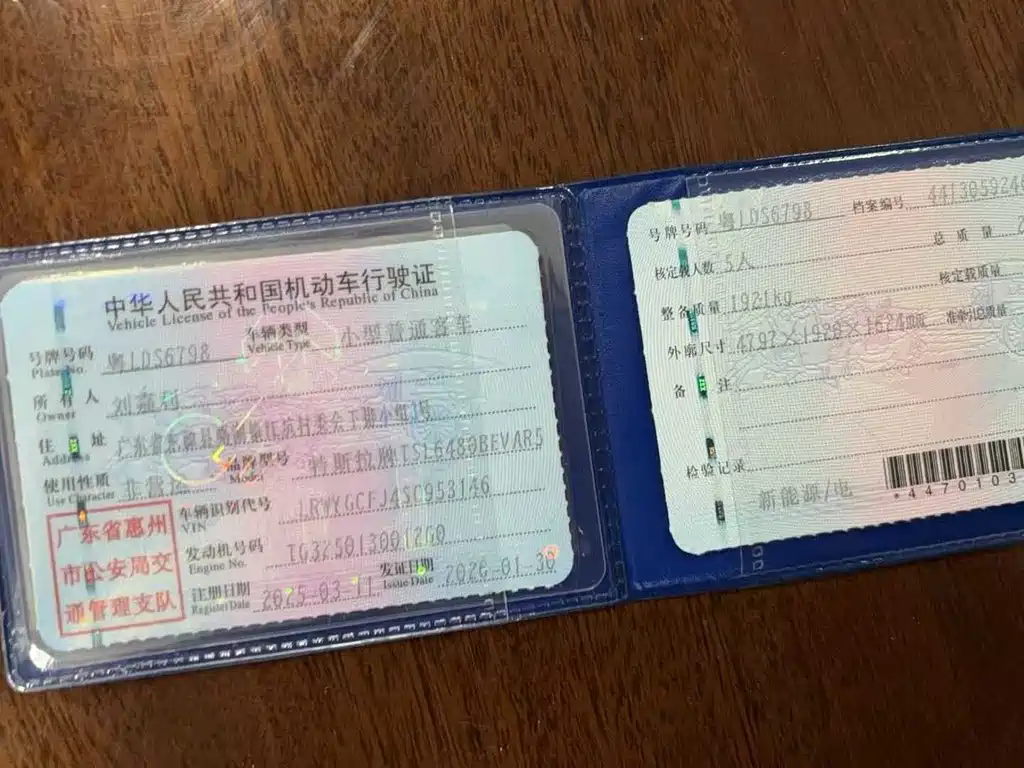 中华人民共和国机动车行驶证
Vehicle License of the People's Republic of China
号牌号码 粤LDS6798 车辆类型 小型普通客车
Plate No. Vehicle Type
所有人 刘
Owner
住址 广东省 县 村委会 小组 号
Address
使用性质 非营运 品牌型号 特斯拉牌TSL6480BEVAR5
Use Character Model
车辆识别代号 LRWYGCFJ4SC953146
VIN
发动机号码 TG3250130012G0
Engine No.
注册日期 2025-03-11 发证日期 2026-01-30
Register Date Issue Date
广东省惠州
市公安局交
通管理支队
号牌号码 粤LDS6798 档案编号 441305924
核定载人数 5人 总质量
整备质量 1921kg 核定载质量
外廓尺寸 4797×1920×1624mm 准牵引总质量
备注
检验记录
*4470103
新能源/电